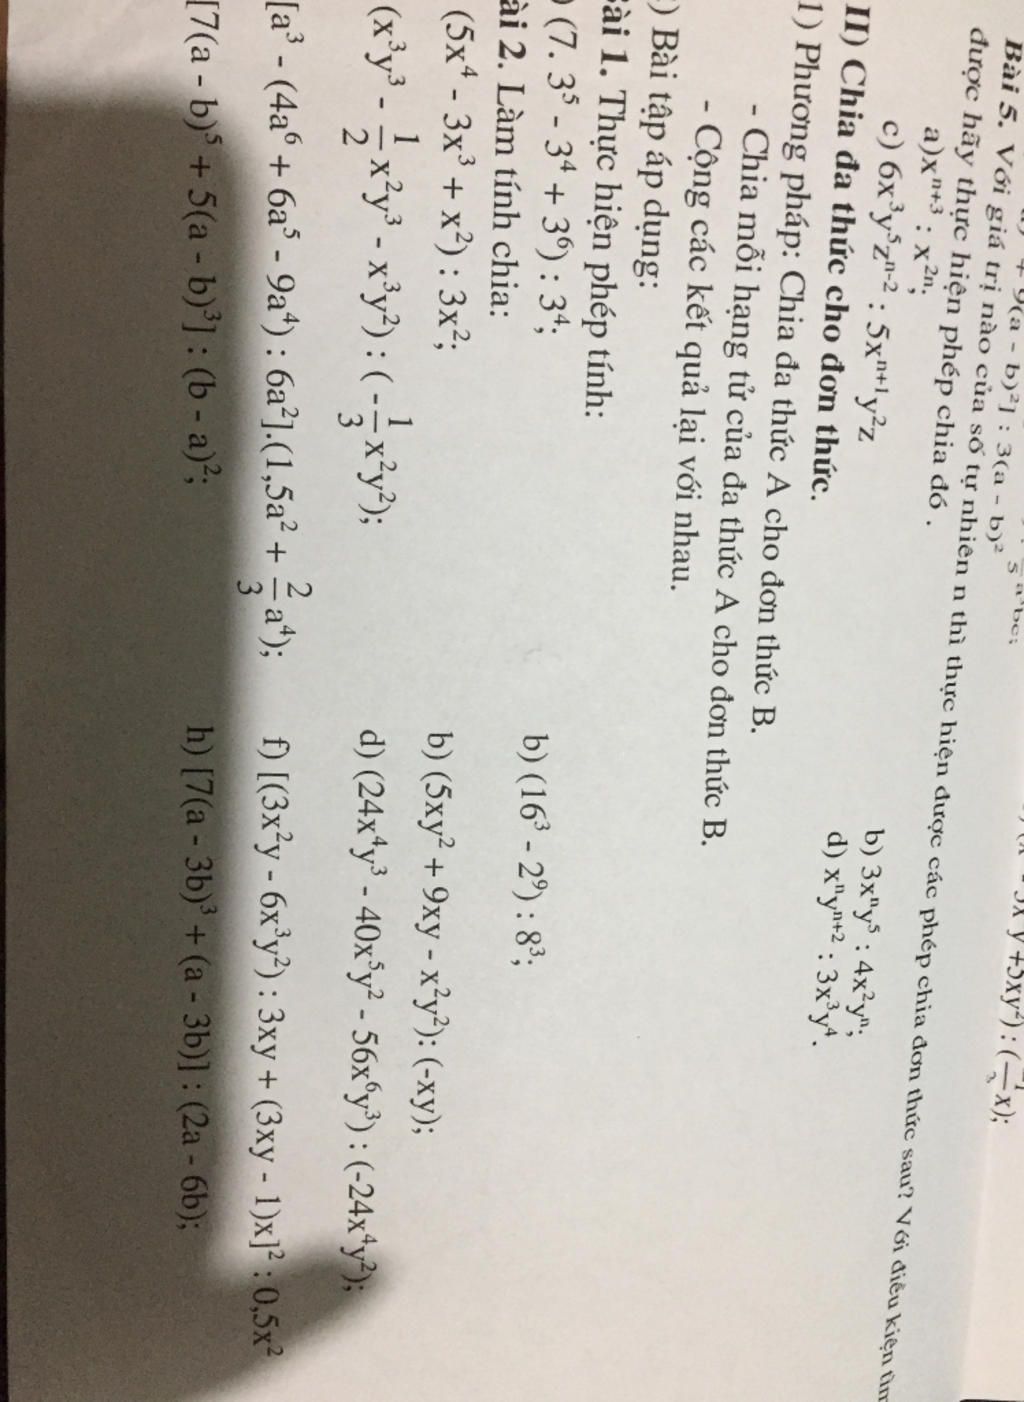 + 9(a - b)²] : 3(a - b)²
Bài 5. Với giá trị nào của số tự nhiên n thì thực hiện được các phép chia đơn thức sau? Với điều kiện tìm
được hãy thực hiện phép chia đó .
a)xⁿ⁺³ : x²ⁿ; b) 3xⁿy⁵ : 4x²yⁿ;
c) 6x³y⁵zⁿ⁻² : 5xⁿ⁺¹y²z d) xⁿyⁿ⁺² : 3x³y⁴ .
II) Chia đa thức cho đơn thức.
1) Phương pháp: Chia đa thức A cho đơn thức B.
- Chia mỗi hạng tử của đa thức A cho đơn thức B.
- Cộng các kết quả lại với nhau.
) Bài tập áp dụng:
ài 1. Thực hiện phép tính:
) (7. 3⁵ - 3⁴ + 3⁶) : 3⁴; b) (16³ - 2⁹) : 8³;
ài 2. Làm tính chia:
(5x⁴ - 3x³ + x²) : 3x²; b) (5xy² + 9xy - x²y²): (-xy);
(x³y³ - 1/2 x²y³ - x³y²) : ( - 1/3 x²y²); d) (24x⁴y³ - 40x⁵y² - 56x⁶y³) : (-24x⁴y²);
[a³ - (4a⁶ + 6a⁵ - 9a⁴) : 6a²].(1,5a² + 2/3 a⁴); f) [(3x²y - 6x³y²) : 3xy + (3xy - 1)x]² : 0,5x²
[7(a - b)⁵ + 5(a - b)³] : (b - a)²; h) [7(a - 3b)³ + (a - 3b)] : (2a - 6b);